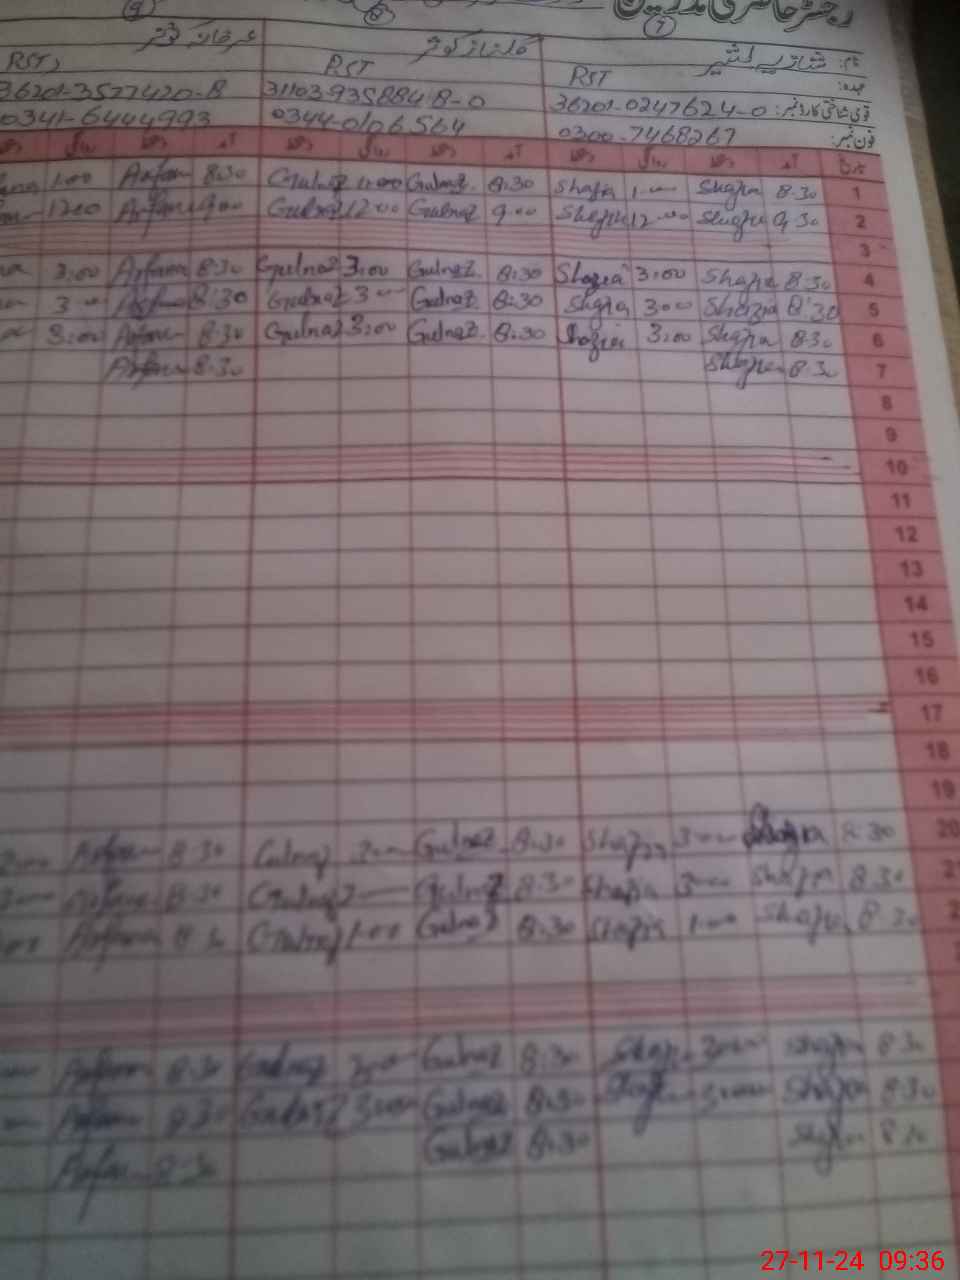 رجسٹر حاضری مدرسین
9 8 7
نام: شازیہ بشیر
عہدہ: RST RST RST
قومی شناختی کارڈ نمبر: 36201-0247624-0 31103-9358848-0 36201-3577420-8
فون نمبر: 0300-7468267 0344-0106564 0341-6444993
تاریخ آمد دستخط روانگی دستخط آمد دستخط روانگی دستخط آمد دستخط روانگی
1:00 Arfana 8:30 Gulnaz 1:00 Gulnaz 8:30 Shazia 1:00 Shazia 8:30 1
12:00 Arfana 9:00 Gulnaz 12:00 Gulnaz 9:00 Shazia 12:00 Shazia 9:30 2
3
3:00 Arfana 8:30 Gulnaz 3:00 Gulnaz 8:30 Shazia 3:00 Shazia 8:30 4
3:00 Arfana 8:30 Gulnaz 3:00 Gulnaz 8:30 Shazia 3:00 Shazia 8:30 5
3:00 Arfana 8:30 Gulnaz 3:00 Gulnaz 8:30 Shazia 3:00 Shazia 8:30 6
Arfana 8:30 Shazia 8:30 7
8
9
10
11
12
13
14
15
16
17
18
19
Arfana 8:30 Gulnaz Gulnaz 8:30 Shazia 3:00 Shazia 8:30 20
Arfana 8:30 Gulnaz Gulnaz 8:30 Shazia 3:00 Shazia 8:30
Arfana 8:30 Gulnaz 1:00 Gulnaz 8:30 Shazia 1:00 Shazia 8:30
Arfana 8:30 Gulnaz 3:00 Gulnaz 8:30 Shazia 3:00 Shazia 8:30
Arfana 8:30 Gulnaz 3:00 Gulnaz 8:30 Shazia 3:00 Shazia 8:30
Arfana 8:30 Gulnaz 8:30 Shazia 8:30
27-11-24 09:36